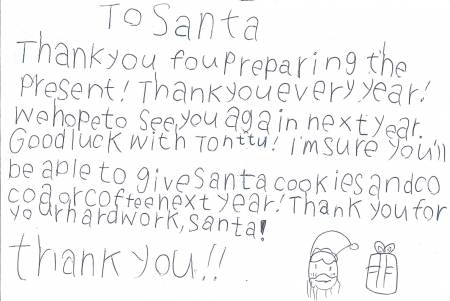 To Santa
Thank you fou preparing the
present! Thank you every year!
We hope to see you again next year.
Good luck with Tonttu! I'm sure you'll
be able to give Santa cookies and co
coa or coffee next year! Thank you for
yourhard work, Santa!
thank you!!